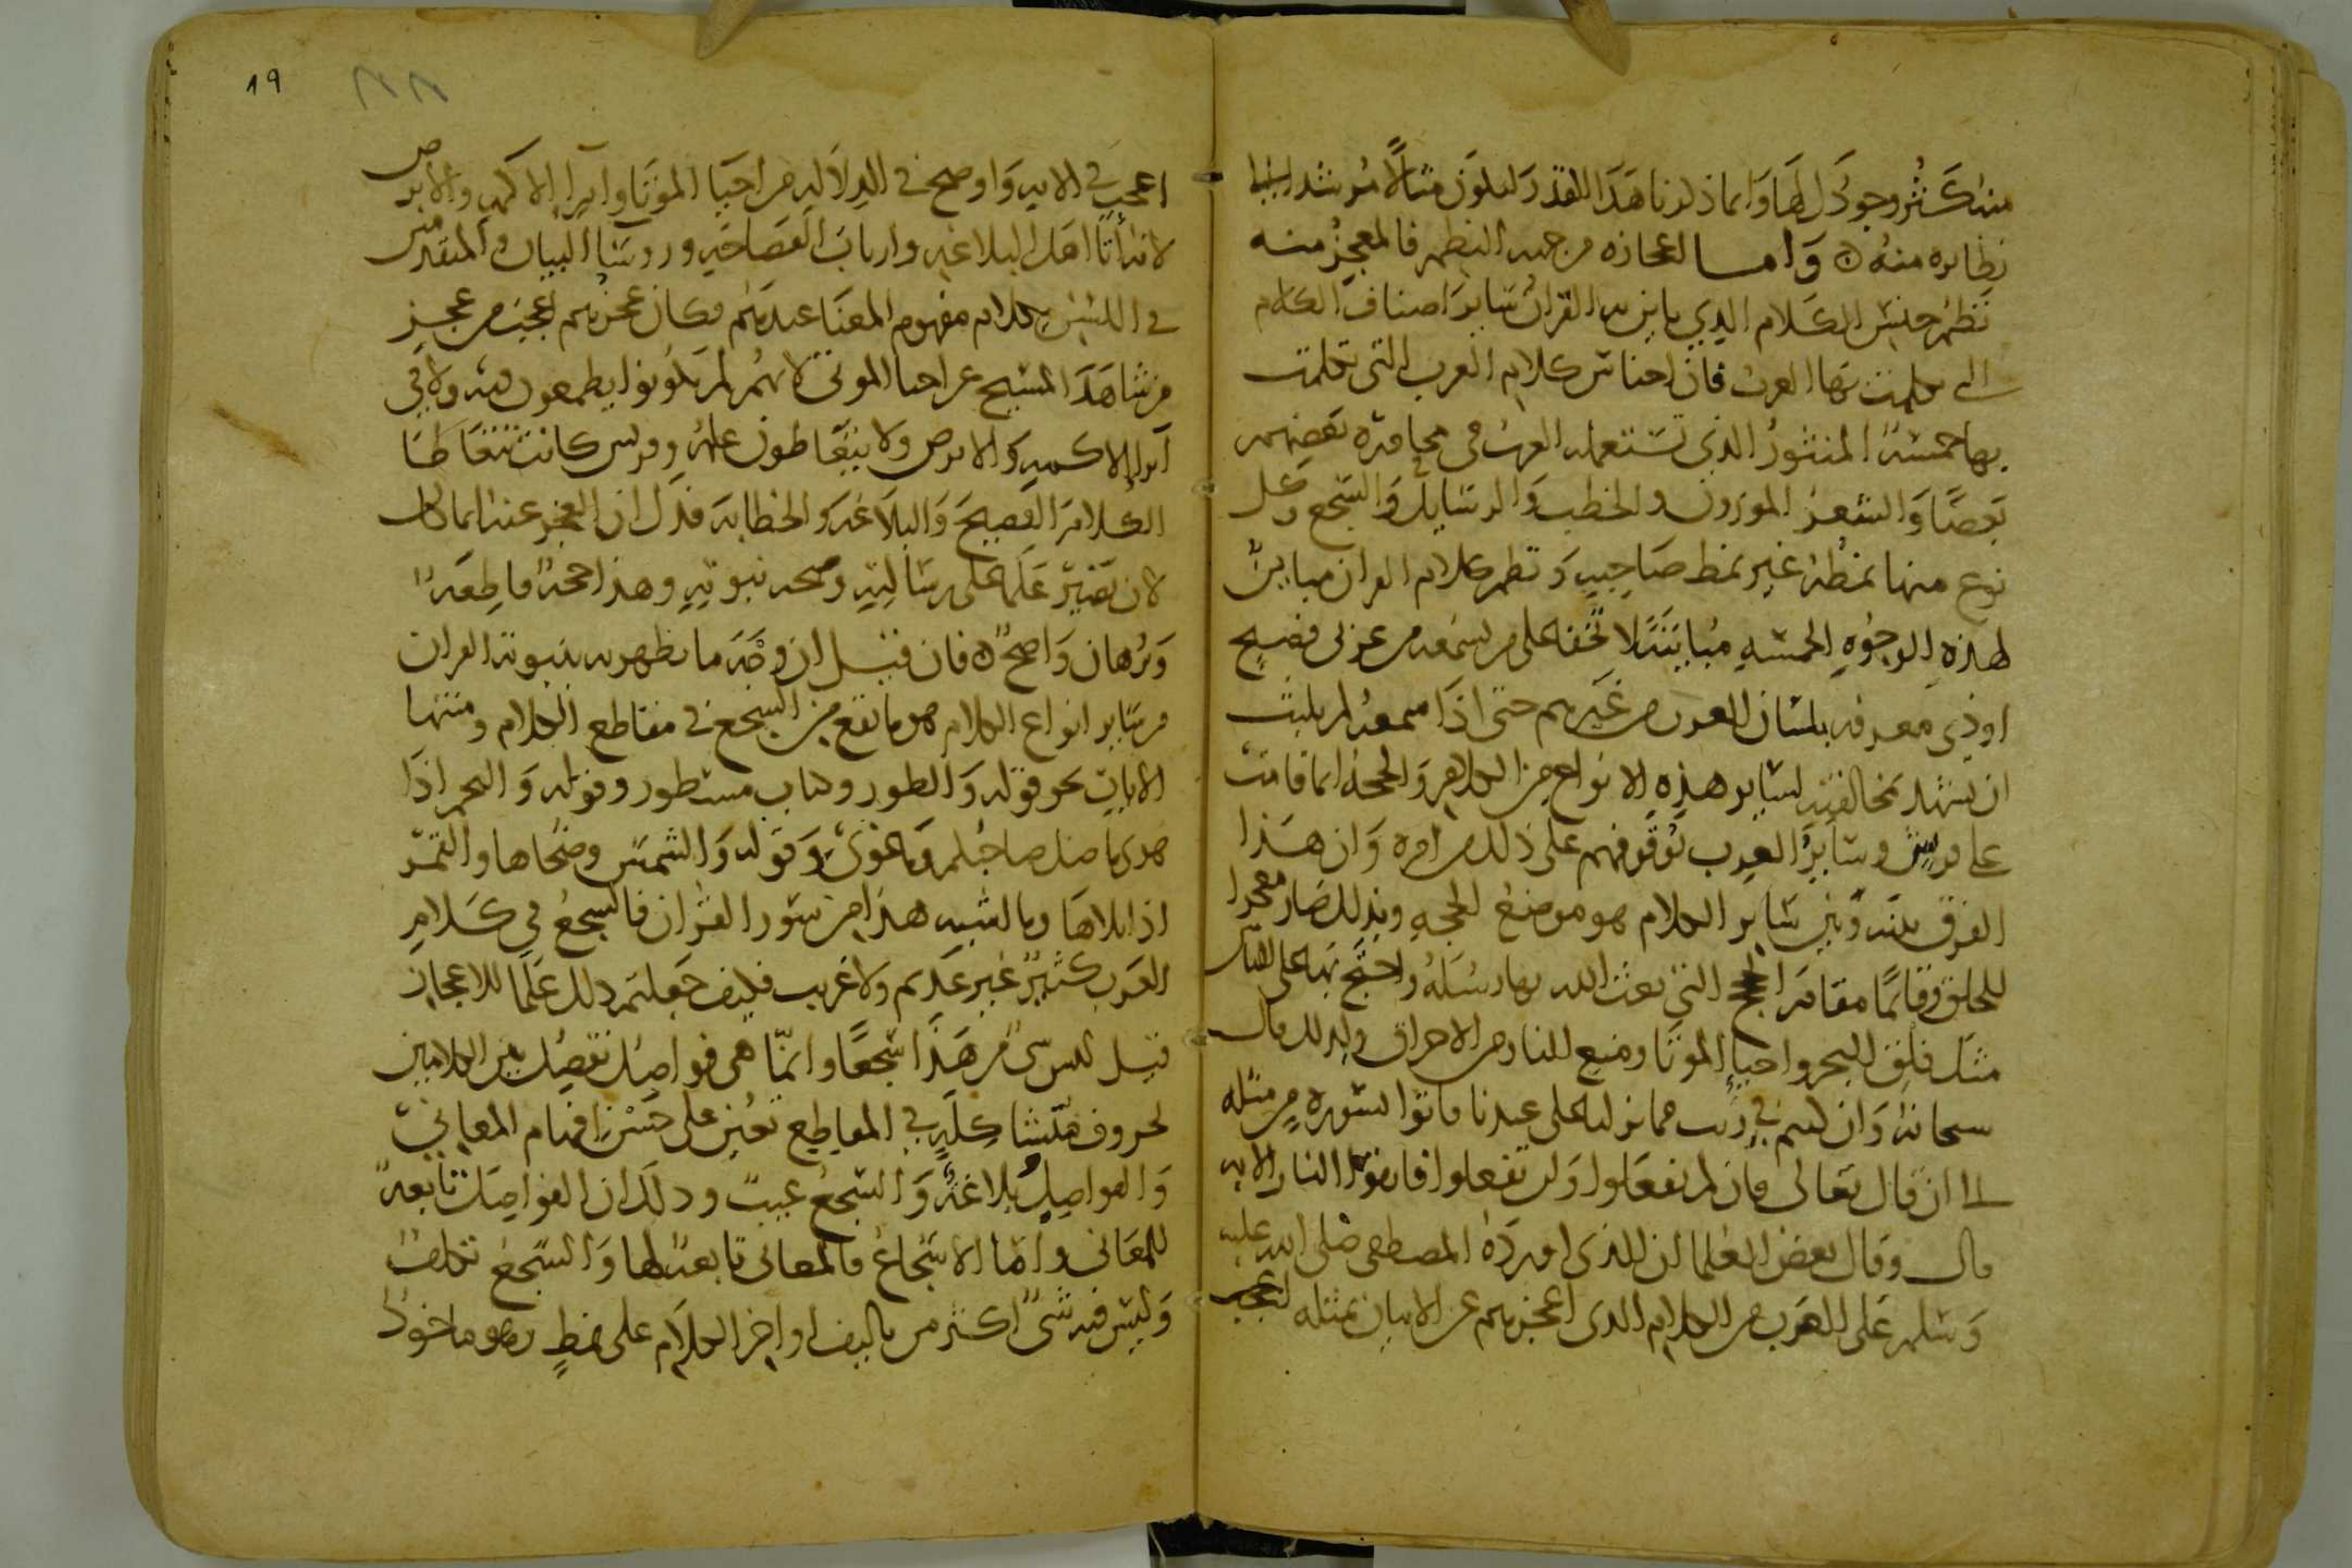 منه كثر وجودك لها وانما ذكرنا هذا القدر ليكون مثالا مرشدا الى
نظايره منه ۞ واما اعجازه من جهه النظم فالمعجز منه
نظم جنس الكلام الذي باين به القران ساير اصناف الكلام
التي تكلمت بها العرب فان اجناس كلام العرب التي تكلمت
بها خمسة المنثور الذي تستعمله العرب في محاورة بعضهم
بعضا والشعر الموزون والخطب والرسايل والسجع وكل
نوع منها نمطه غير نمط صاحبه ونظم كلام القران مباين
لهذه الوجوه الخمسه مباينة لا تخفى على من يسمعه من عربي فصيح
او ذي معرفه بلسان العرب من غيرهم حتى اذا سمعه لم يلبث
ان يشهد بمخالفته لساير هذه الانواع من الكلام والحجة انما قامت
على قريش وساير العرب بوقوفهم على ذلك من امره وان هذا
الفرق بينه وبين ساير الكلام هو موضع الحجه وبذلك صار معجزا
للخلق وقائما مقام الحجج التي بعث الله بها رسله واحتج بها على
مثل فلق البحر واحيا الموتا ومنع النار من الاحراق ولذلك قال
سبحانه وان كنتم في ريب مما نزلنا على عبدنا فاتوا بسورة من مثله
الى ان قال تعالى فان لم تفعلوا ولن تفعلوا فاتقوا النار الايه
قال وقال بعض العلما ان الذي اورده المصطفى صلى الله عليه
وسلم على العرب من الكلام الذي اعجزهم عن الاتيان بمثله
١٩
اعجب في الايه واوضح في الدلاله من احيا الموتا وابرا الاكمه والابرص
لانه اتا اهل البلاغه وارباب الفصاحه وروسا البيان والمتقدمين
في اللسن بكلام مفهوم المعنا عندهم فكان عجزهم اعجب من عجز
من شاهد المسيح عن احيا الموتى لانهم لم يكونوا يطمعون فيه ولا في
ابرا الاكمه والابرص ولا يتعاطون علمه وقريش كانت تتعاطا
الكلام الفصيح والبلاغه والخطابه فدل ان العجز عنه انما كان
لان يصير علما على رسالته وصحه نبوته وهذا حجة قاطعة
وبرهان واضح ۞ فان قيل ان وجه ما تظهر به بينونة القران
من ساير انواع الكلام هو ما يقع من السجع في مقاطع الكلام ومنتها
الايات نحو قوله والطور وكتاب مسطور وقوله والنجم اذا
هوى ما ضل صاحبكم وما غوى وقوله والشمس وضحاها والقمر
اذا تلاها وما اشبه هذا من سور القران فالسجع في كلام
العرب كثير غير عديم ولا غريب فكيف جعلتم ذلك علما للاعجاز
قيل ليس شي من هذا سجعا وانما هي فواصل تفصل بين الكلامين
بحروف متشاكلة في المقاطع تعين على حسن افهام المعاني
والفواصل بلاغة والسجع عيب وذلك ان الفواصل تابعة
للمعاني واما الاسجاع فالمعاني تابعة لها والسجع تكلف
وليس فيه شي اكثر من تاليف اواخر الكلام على نمط وهو ماخوذ